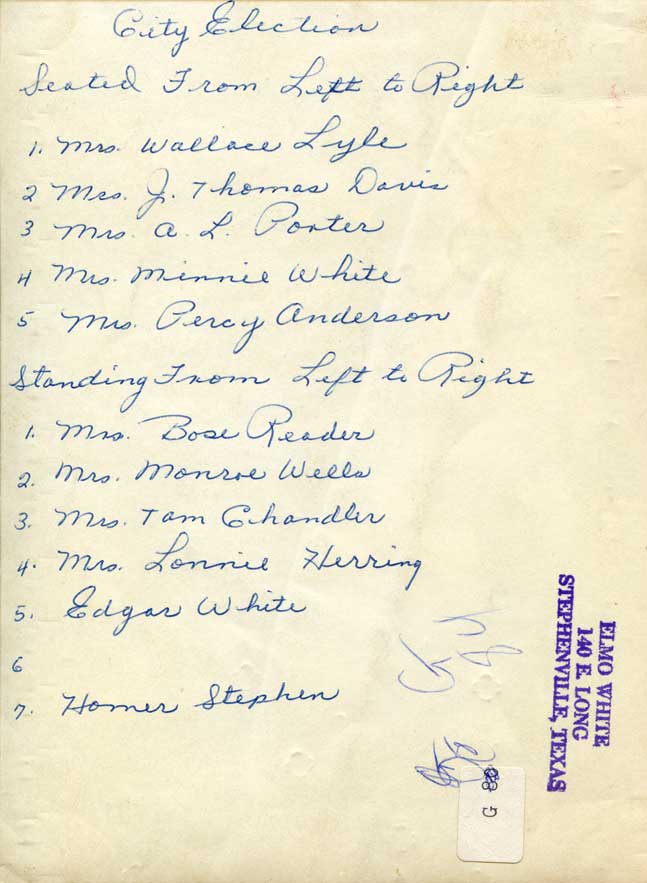 City Election
Seated From Left to Right
1. Mrs. Wallace Lyle
2 Mrs. J. Thomas Davis
3 Mrs. A. L. Porter
4 Mrs. Minnie White
5 Mrs. Percy Anderson
Standing From Left to Right
1. Mrs. Bose Reader
2. Mrs. Monroe Wells
3. Mrs. Tom Chandler
4. Mrs. Lonnie Herring
5. Edgar White
6
7. Homer Stephen
ELMO WHITE
140 E. LONG
STEPHENVILLE, TEXAS
G 88